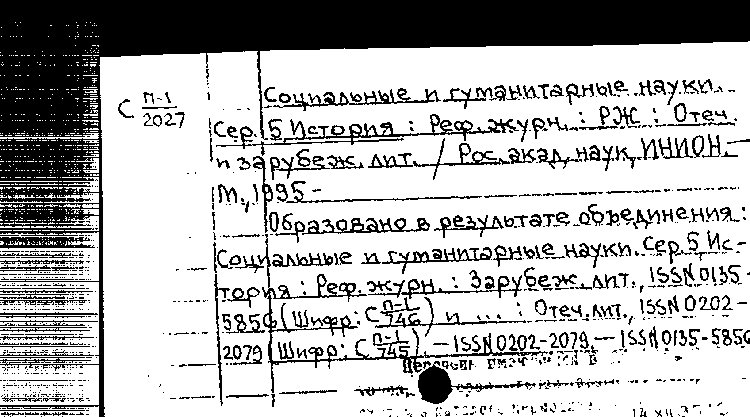 С П-1/2027
Социальные и гуманитарные науки.
Сер. 5, История : Реф. журн. : РЖ : Отеч.
и зарубеж. лит. / Рос. акад. наук, ИНИОН. —
М., 1995 -
Образовано в результате объединения :
Социальные и гуманитарные науки. Сер. 5, Ис-
тория : Реф. журн. : Зарубеж. лит., ISSN 0135-
5856 (Шифр: С П-1/746) и ... : Отеч. лит., ISSN 0202-
2079 (Шифр: С П-1/745). — ISSN 0202-2079. — ISSN 0135-5856